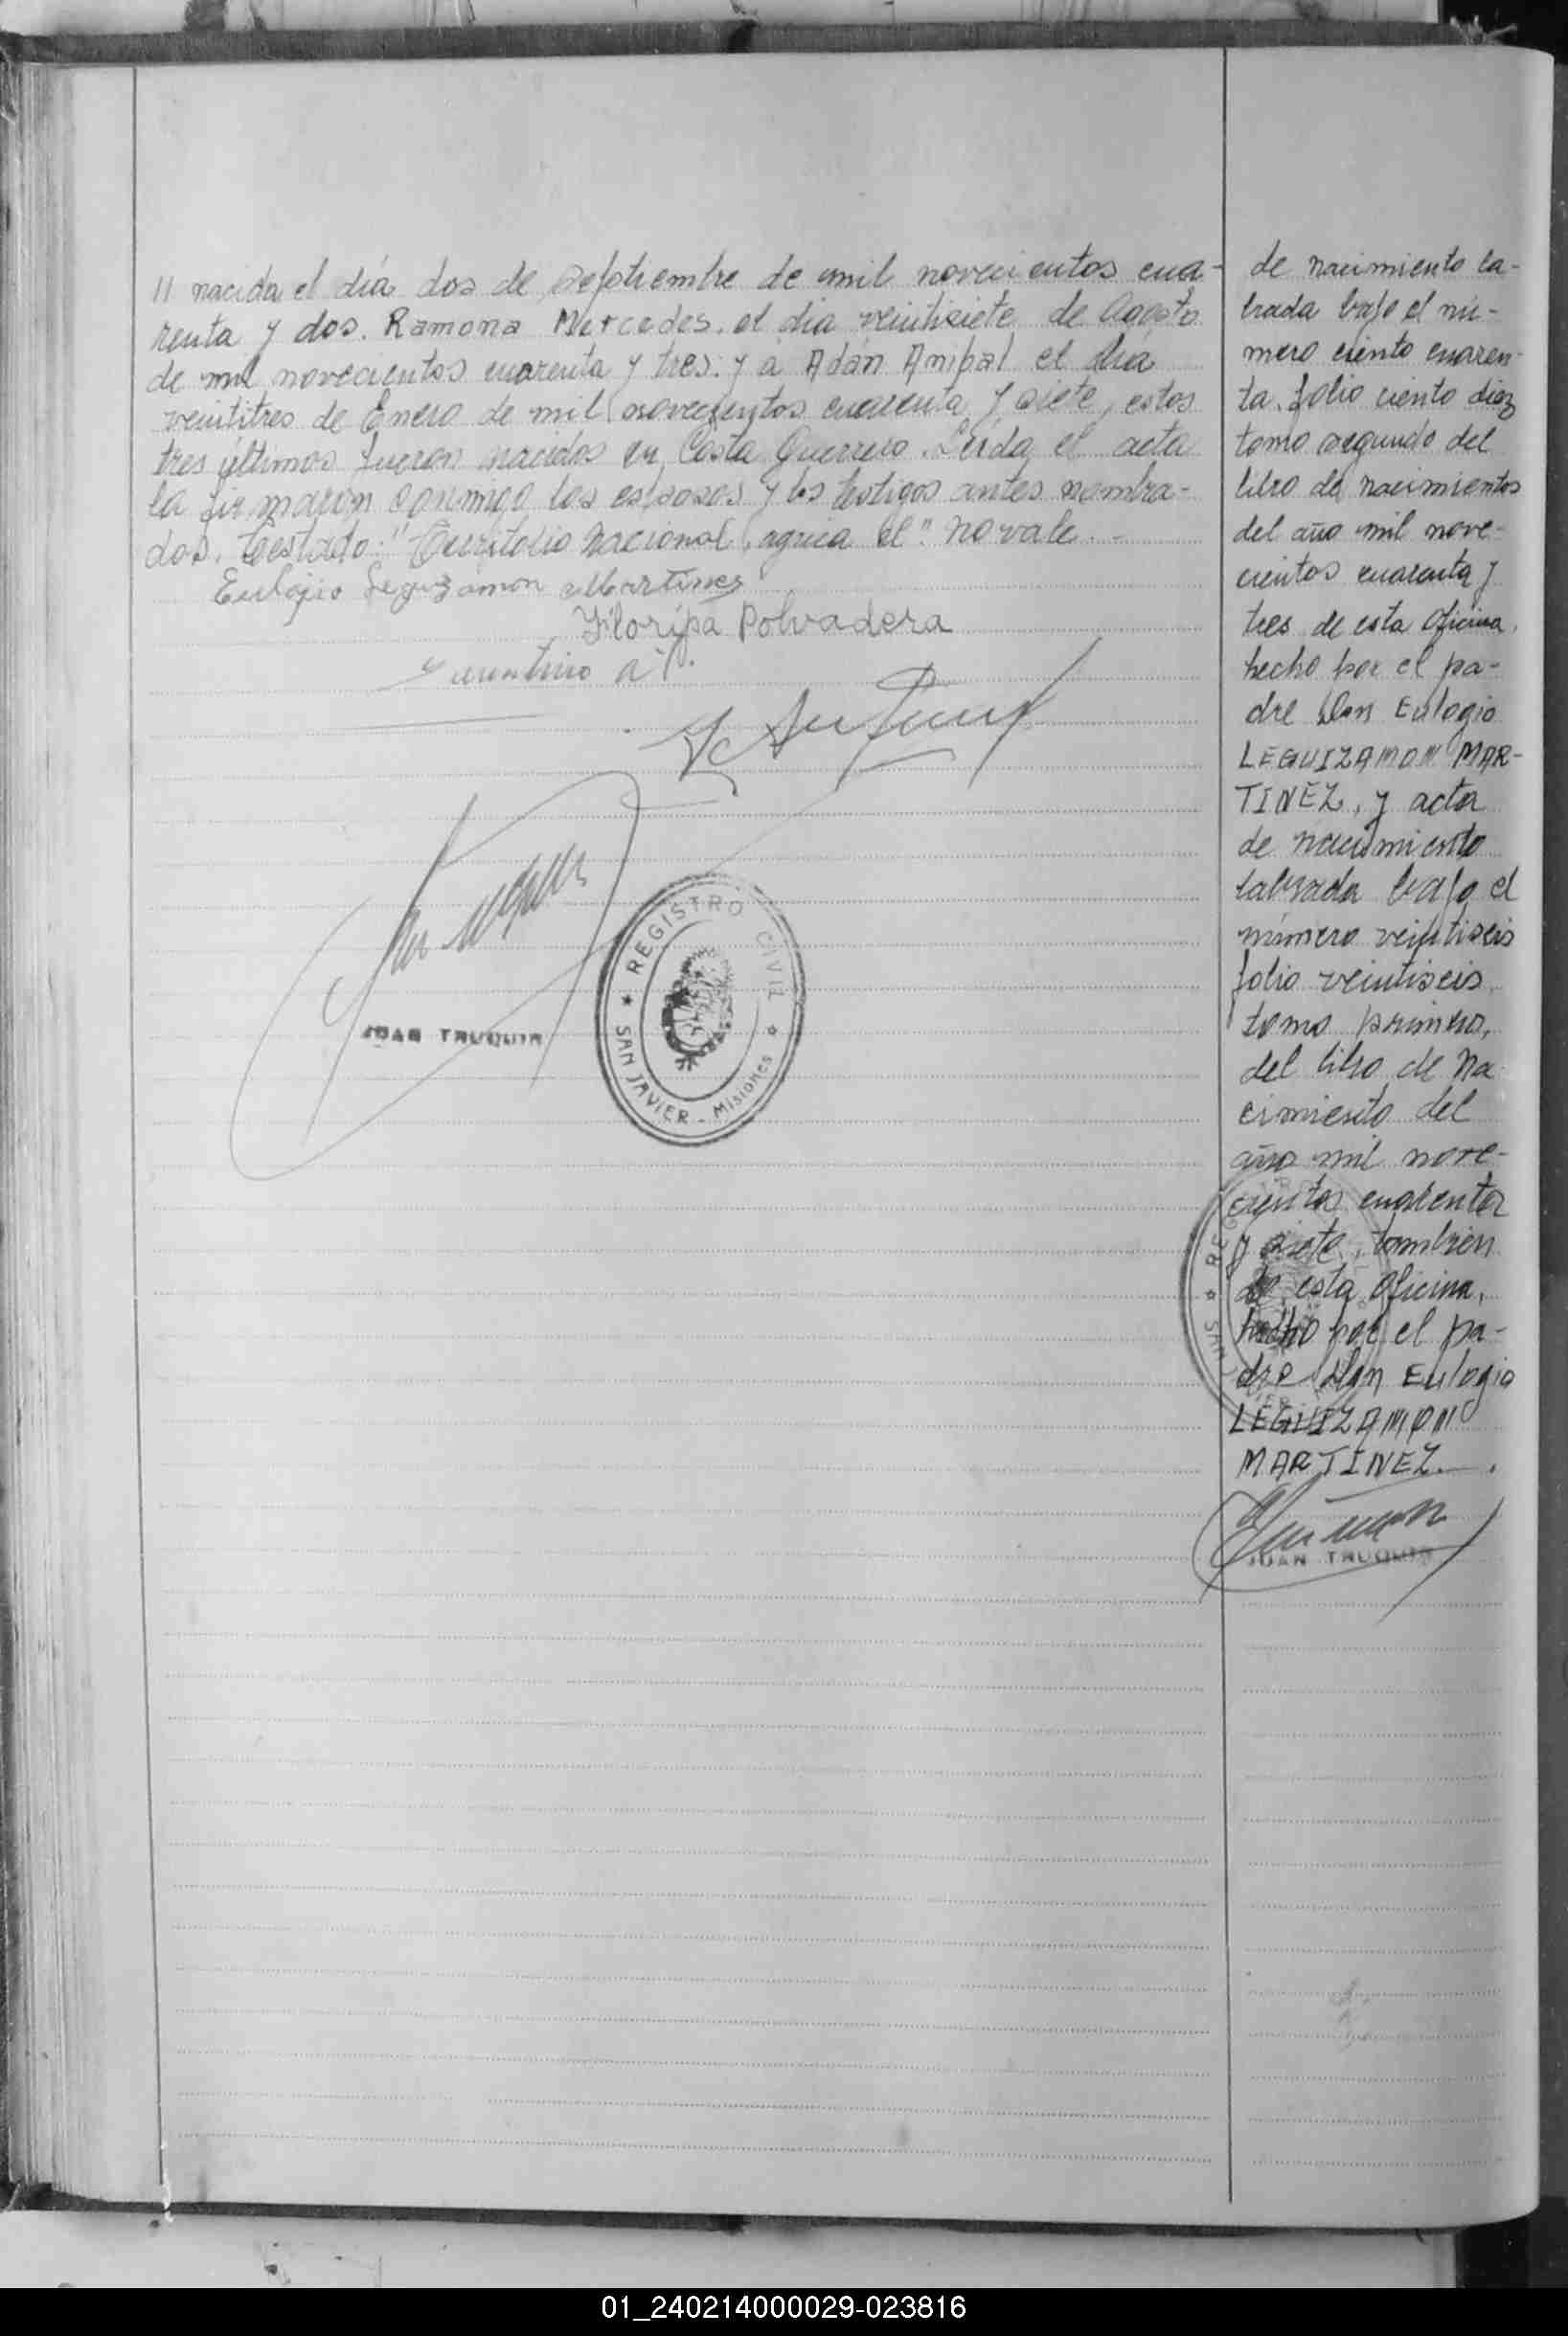 11 nacida el día dos de Septiembre de mil novecientos cua-
renta y dos. Ramona Mercedes. el dia veintisiete de Agosto
de mil novecientos cuarenta y tres: y a Adán Anibal el dia
veintitres de Enero de mil novecientos cuarenta y siete, estos
tres últimos fueron nacidos en Costa Guerrero. Leída el acta
la firmaron conmigo los esposos y los testigos antes nombra-
dos. Testado: "Territorio Nacional, el". no vale. -
Eulogio Leguizamon Martines
Floripa Polvadera
JUAN TRUQUIN
REGISTRO CIVIL
SAN JAVIER - Misiones
de nacimiento la-
brada bajo el nú-
mero ciento cuaren-
ta. folio ciento diez
tomo segundo del
libro de nacimientos
del año mil nove-
cientos cuarenta y
tres de esta Oficina,
hecho por el pa-
dre Don Eulogio
LEGUIZAMON MAR-
TINEZ, y acta
de nacimiento
labrada bajo el
número veintiseis
folio veintiseis
tomo primero,
del libro de Na-
cimiento del
año mil nove-
cientos cuarenta
y siete, tambien
de esta Oficina,
hecho por el pa-
dre Don Eulogio
LEGUIZAMON
MARTINEZ.
JUAN TRUQUIN
01_240214000029-023816